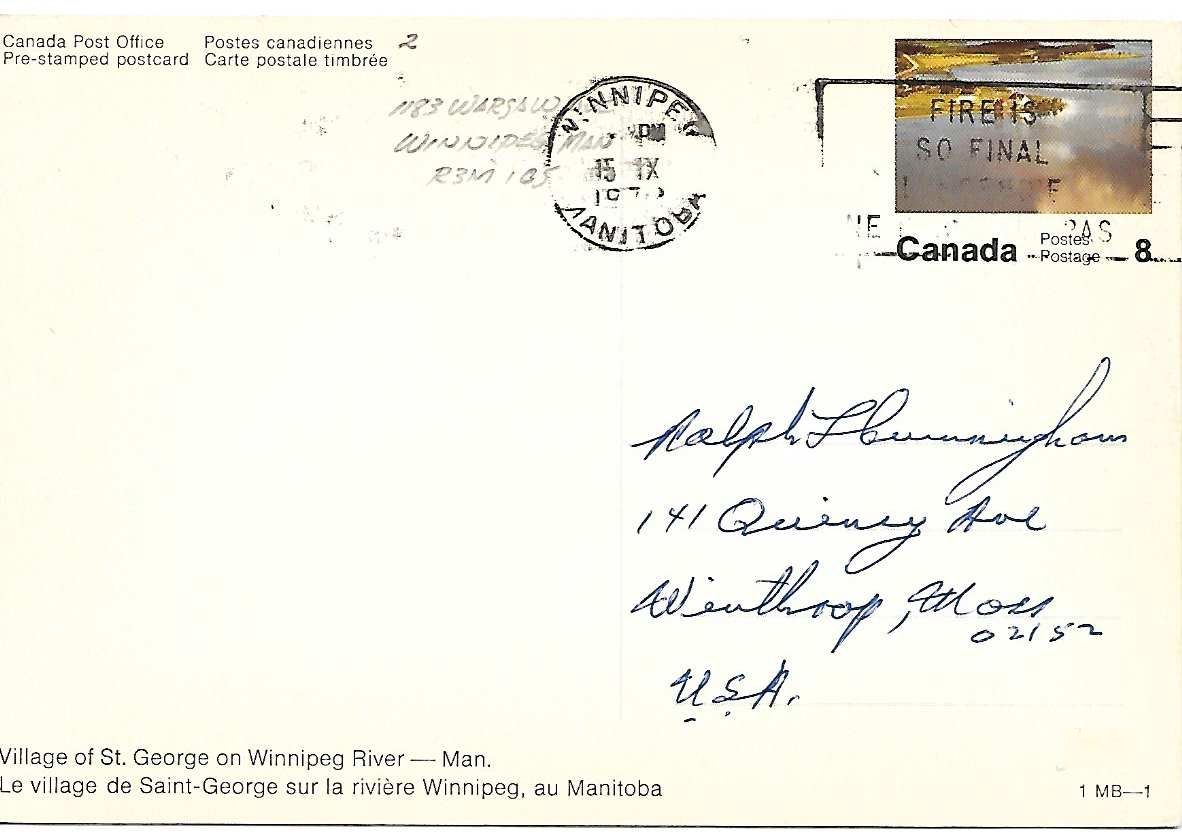 Canada Post Office Postes canadiennes 2
Pre-stamped postcard Carte postale timbrée
1183 WARSAW
WINNIPEG MAN
R3M 1C5
WINNIPEG
PM
15 IX
MANITOBA
FIRE IS
SO FINAL
NE PAS
Canada Postes Postage 8
Ralph L Cunningham
141 Quincy Ave
Winthrop, Mass
02152
U.S.A.
Village of St. George on Winnipeg River — Man.
Le village de Saint-George sur la rivière Winnipeg, au Manitoba
1 MB—1